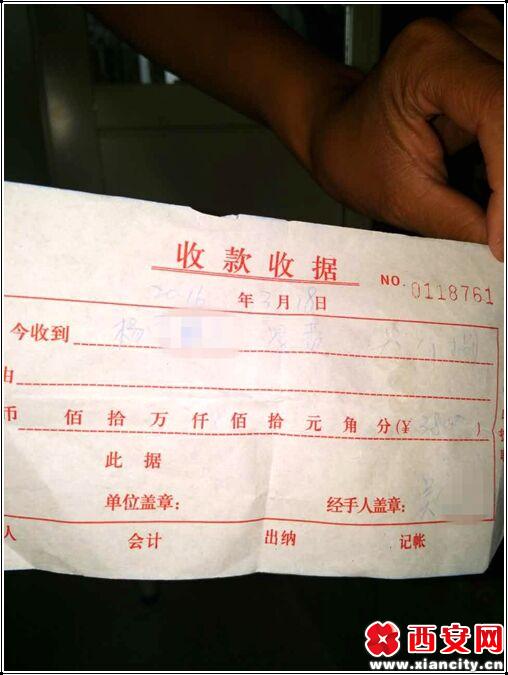 收款收据
NO. 0118761
2016 年 3 月 18 日
今收到 杨
由
币 佰 拾 万 仟 佰 拾 元 角 分(¥ )
此 据
单位盖章: 经手人盖章:
人 会计 出纳 记帐
西安网
www.xiancity.cn